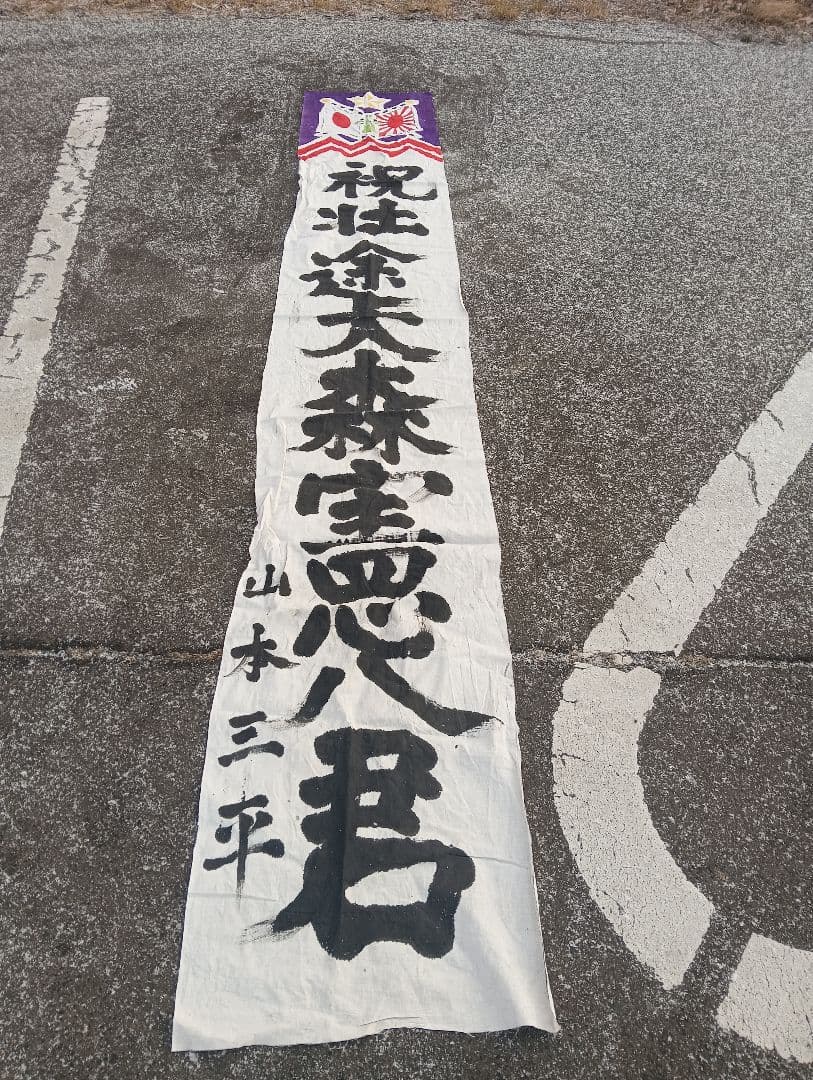 祝壮途大森憲八君
山本三平